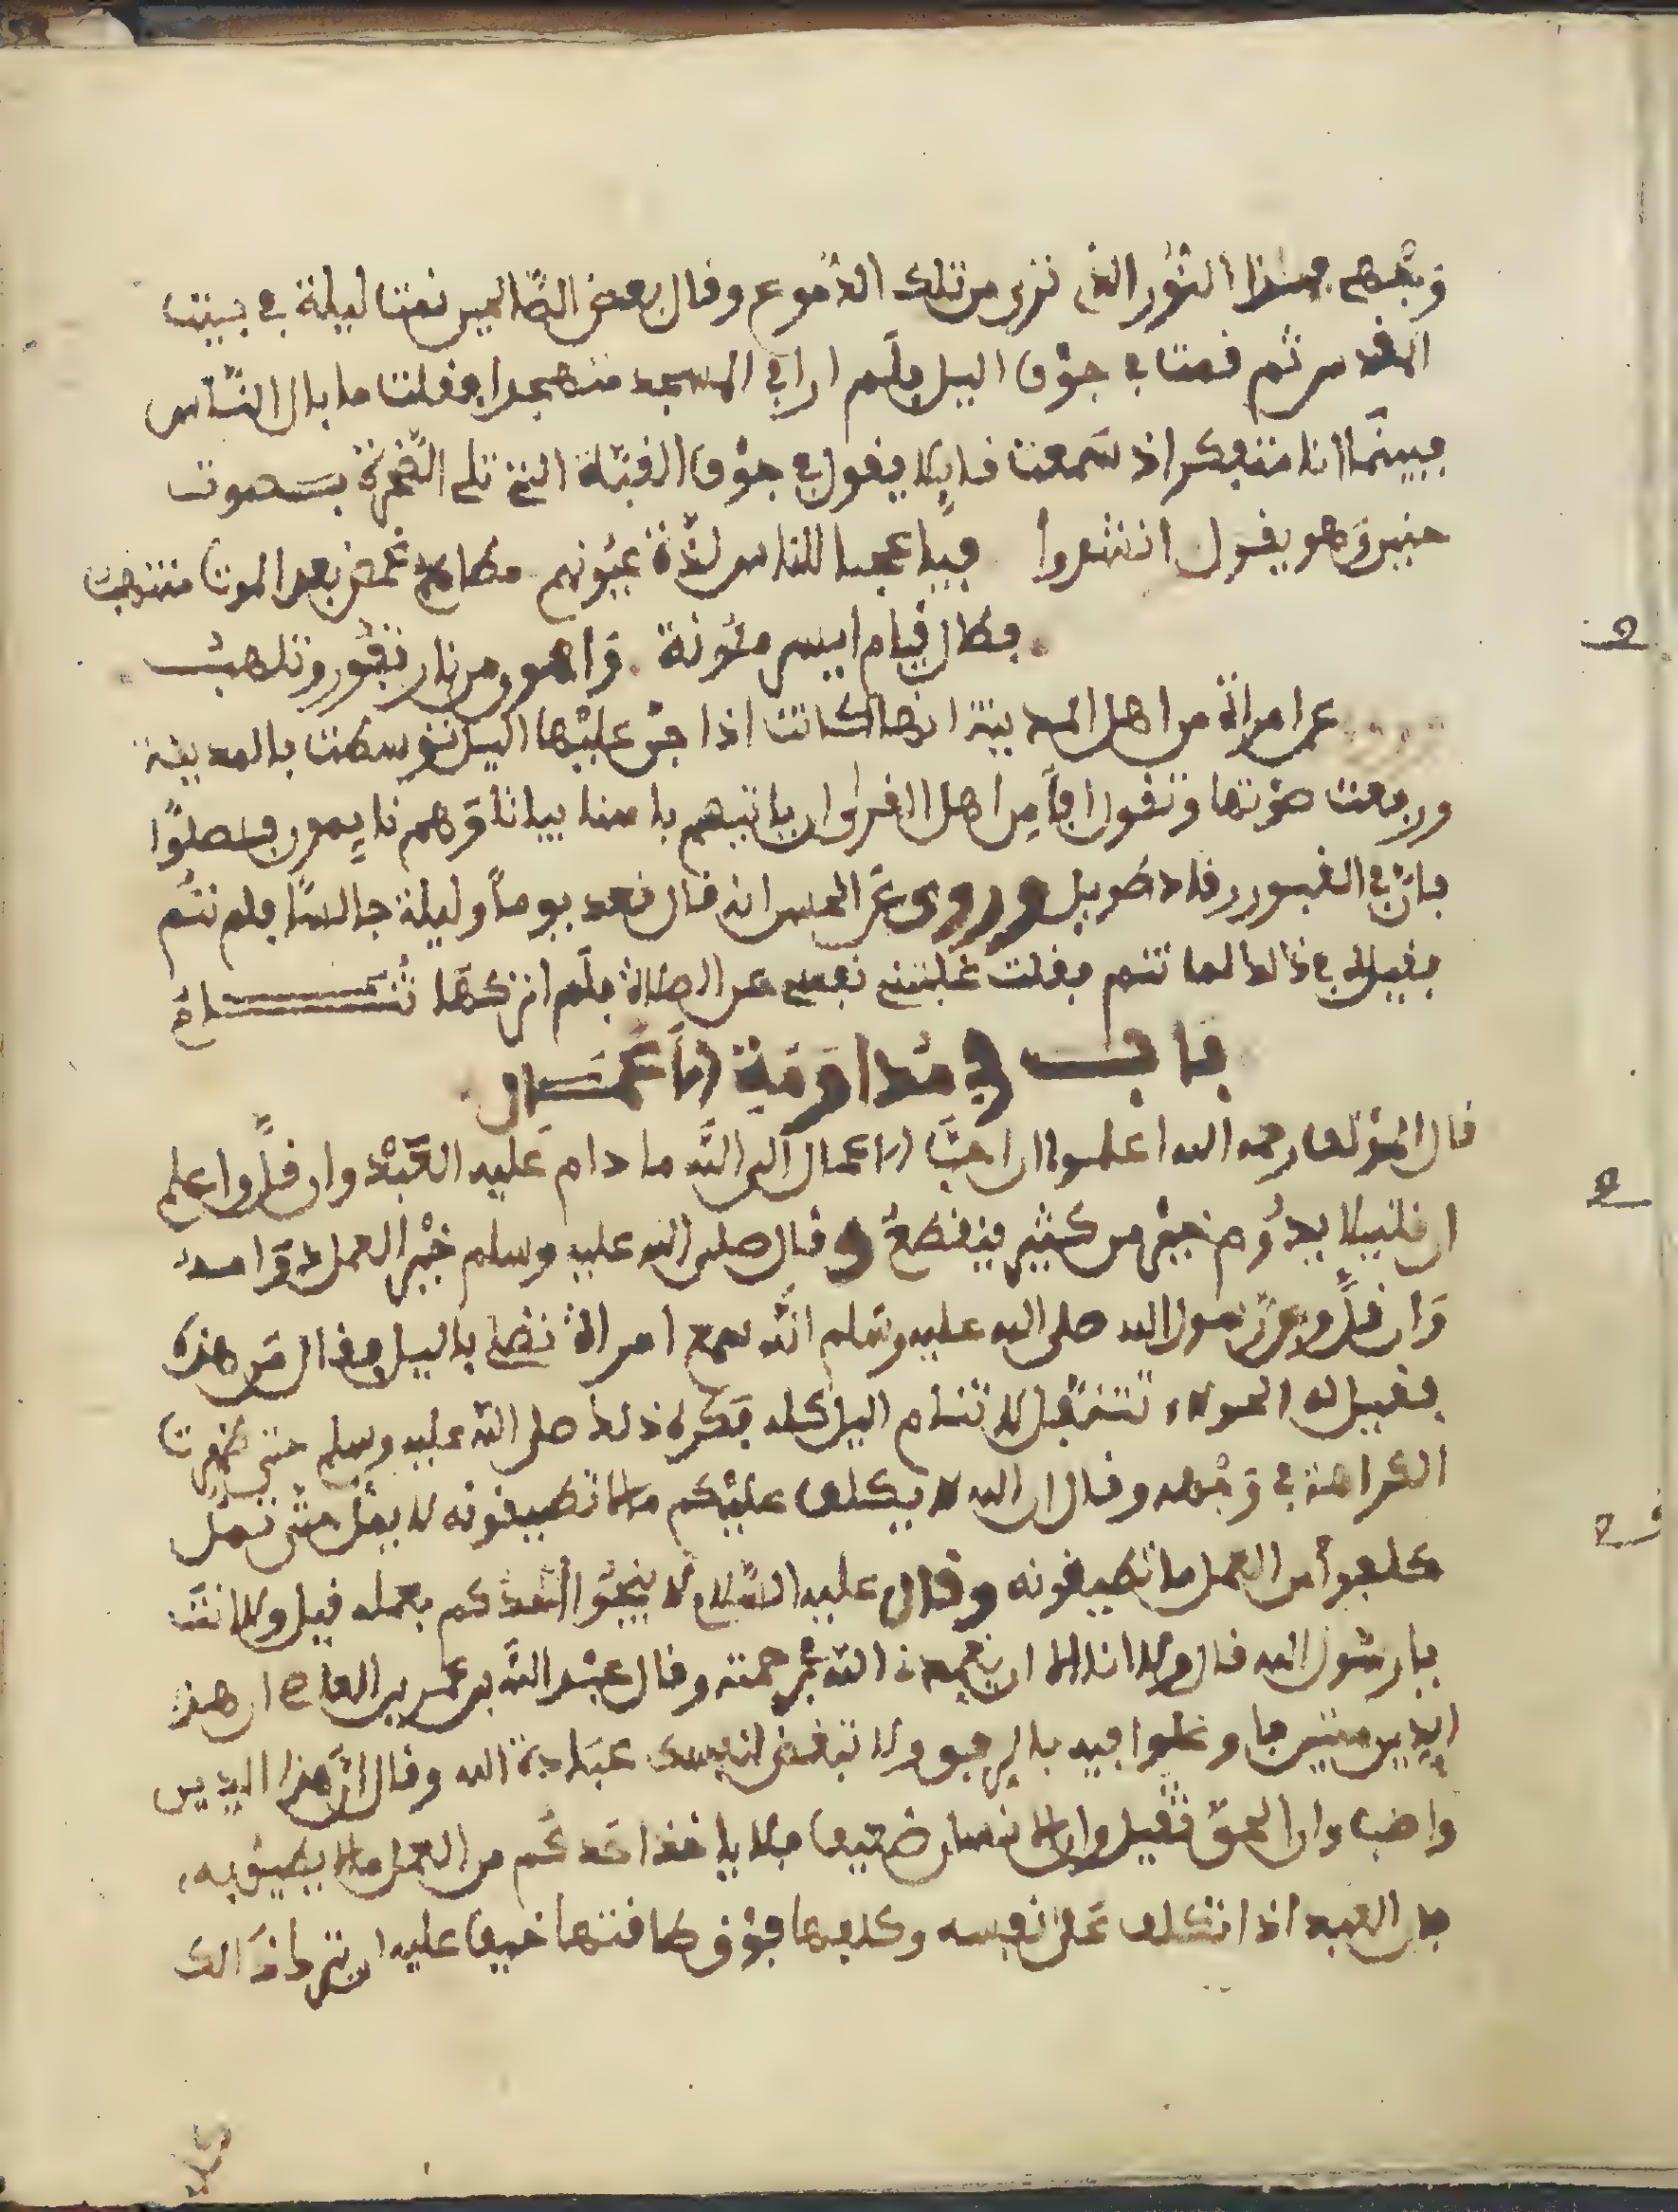 وجهه فهذا النور الذي ترى من تلك الدموع وقال بعض الصالحين نمت ليلة في بيت
المقدس ثم قمت في جوف اليل فلم ار في المسجد متهجدا فقلت ما بال الناس
فبينما انا متفكر اذ سمعت قايلا يقول في جوف القبة التي تلي الصخرة بصوت
حنين وهو يقول انتشدوا فيا عجبا للناس لذة عيونهم مطاعم غمض بعد الموت منتهب
فطال قيام ايسر مئونة واهون من نار تفور وتلهب
عن امراة من اهل المدينة انها كانت اذا جن عليها اليل توسطت بالمدينة
ورفعت صوتها وتقول افأمن اهل القرى ان ياتيهم باسنا بياتا وهم نايمون فصلوا
فان في القبور رقاد طويل وروي عن الحسن انه قال قعد يوما وليلة جالسا فلم تنم
فقيل لي في ذالك لما تنم فقلت غلبتني نفسي عن الصلاة فلم اتركها تنام
باب في مداومة الاعمال
قال المؤلف رحمه الله اعلموا ان احب الاعمال الى الله ما دام عليه العبد وان قل واعلم
ان قليلا يدوم خير من كثير ينقطع وقال صلى الله عليه وسلم خير العمل دوامه
وان قل وعن رسول الله صلى الله عليه وسلم انه سمع امراة تصلي باليل فقال من هذه
فقيل له الحولاء تتنفل لا تنام اليل كله فكره ذلك صلى الله عليه وسلم حتى ظهرت
الكراهة في وجهه وقال ان الله لا يكلف عليكم ما لا تطيقونه لا يمل حتى تمل
كلفوا من العمل ما تطيقونه وقال عليه السلام لا ينجوا احدكم بعمله قيل ولا انت
يا رسول الله قال ولا انا الا ان يتغمدني الله برحمته وقال عبد الله بن عمر بن العاص ان هذا
الدين متين فاوغلوا فيه بالرفق ولا تبغض لنفسك عبادة الله وقال ان هذا الدين
واضب وان الحق ثقيل وان الانسان ضعيف فلا ياخذ احدكم من العمل ما لا يطيق به
فان العبد اذا تكلف على نفسه وكلفها فوق طاقتها خيف عليه ان يترك ذالك